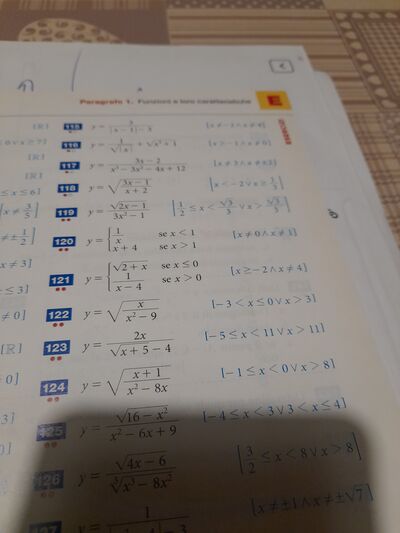 Paragrafo 1. Funzioni e loro caratteristiche E
ESERCIZI
[ℝ] 115 y = 3/(|x − 1| − 3) [x ≠ −2 ∧ x ≠ 4]
116 [x ≥ −1 ∧ x ≠ 0]
[ℝ] 117 y = (3x − 2)/(x³ − 3x² − 4x + 12) [x ≠ 3 ∧ x ≠ ±2]
[ℝ] 118 y = √((3x − 1)/(x + 2)) [x < −2 ∨ x ≥ 1/3]
≤ x ≤ 6] 119 y = √(2x − 1)/(3x² − 1) [1/2 ≤ x < √3/3 ∨ x > √3/3]
x ≠ 3/5]
120 y = { 1/x se x < 1 [x ≠ 0 ∧ x ≠ 1]
x + 4 se x > 1
≠ ± 1/2]
121 y = { √(2 + x) se x ≤ 0 [x ≥ −2 ∧ x ≠ 4]
1/(x − 4) se x > 0
x ≠ 3]
≤ 3]
122 y = √(x/(x² − 9)) [−3 < x ≤ 0 ∨ x > 3]
≠ 0]
[ℝ] 123 y = 2x/(√(x + 5) − 4) [−5 ≤ x < 11 ∨ x > 11]
≠ 0] 124 y = √((x + 1)/(x² − 8x)) [−1 ≤ x < 0 ∨ x > 8]
125 y = √(16 − x²)/(x² − 6x + 9) [−4 ≤ x < 3 ∨ 3 < x ≤ 4]
126 y = √(4x − 6)/∛(x³ − 8x²) [3/2 ≤ x < 8 ∨ x > 8]
127 y = [x ≠ ±1 ∧ x ≠ ±√7]